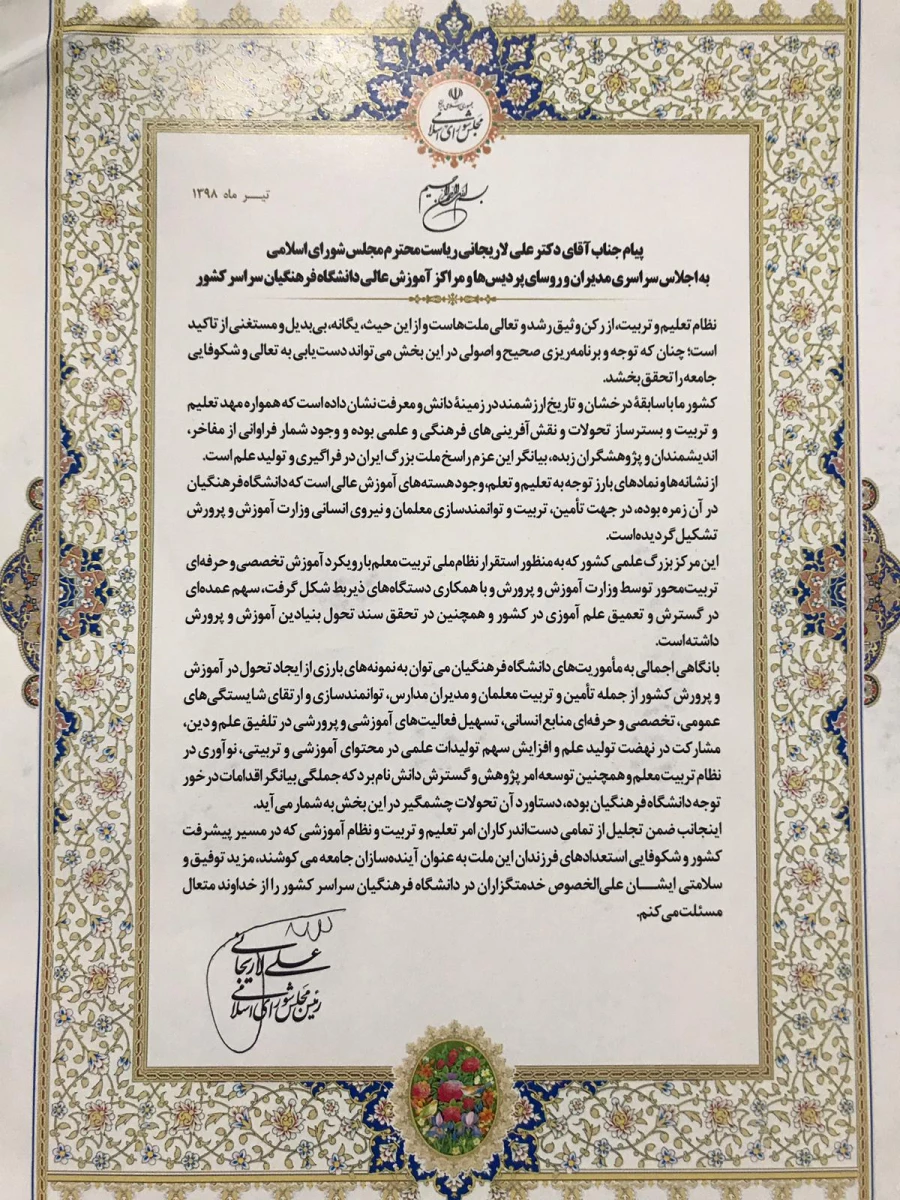 جمهوری اسلامی ایران
مجلس شورای اسلامی
بسم الله الرحمن الرحیم
تیـــر ماه ۱۳۹۸
پیام جناب آقای دکتر علی لاریجانی ریاست محترم مجلس شورای اسلامی
به اجلاس سراسری مدیران و روسای پردیس‌ها و مراکز آموزش عالی دانشگاه فرهنگیان سراسر کشور
نظام تعلیم و تربیت، از رکن وثیق رشد و تعالی ملت‌هاست و از این حیث، یگانه، بی‌بدیل و مستغنی از تاکید
است؛ چنان که توجه و برنامه‌ریزی صحیح و اصولی در این بخش می‌تواند دست‌یابی به تعالی و شکوفایی
جامعه را تحقق بخشد.
کشور ما با سابقهٔ درخشان و تاریخ ارزشمند در زمینهٔ دانش و معرفت نشان داده است که همواره مهد تعلیم
و تربیت و بسترساز تحولات و نقش‌آفرینی‌های فرهنگی و علمی بوده و وجود شمار فراوانی از مفاخر،
اندیشمندان و پژوهشگران زبده، بیانگر این عزم راسخ ملت بزرگ ایران در فراگیری و تولید علم است.
از نشانه‌ها و نمادهای بارز توجه به تعلیم و تعلم، وجود هسته‌های آموزش عالی است که دانشگاه فرهنگیان
در آن زمره بوده، در جهت تأمین، تربیت و توانمندسازی معلمان و نیروی انسانی وزارت آموزش و پرورش
تشکیل گردیده‌است.
این مرکز بزرگ علمی کشور که به منظور استقرار نظام ملی تربیت معلم با رویکرد آموزش تخصصی و حرفه‌ای
تربیت‌محور توسط وزارت آموزش و پرورش و با همکاری دستگاه‌های ذیربط شکل گرفت، سهم عمده‌ای
در گسترش و تعمیق علم آموزی در کشور و همچنین در تحقق سند تحول بنیادین آموزش و پرورش
داشته‌است.
با نگاهی اجمالی به مأموریت‌های دانشگاه فرهنگیان می‌توان به نمونه‌های بارزی از ایجاد تحول در آموزش
و پرورش کشور از جمله تأمین و تربیت معلمان و مدیران مدارس، توانمندسازی و ارتقای شایستگی‌های
عمومی، تخصصی و حرفه‌ای منابع انسانی، تسهیل فعالیت‌های آموزشی و پرورشی در تلفیق علم و دین،
مشارکت در نهضت تولید علم و افزایش سهم تولیدات علمی در محتوای آموزشی و تربیتی، نوآوری در
نظام تربیت معلم و همچنین توسعه امر پژوهش و گسترش دانش نام برد که جملگی بیانگر اقدامات در خور
توجه دانشگاه فرهنگیان بوده، دستاورد آن تحولات چشمگیر در این بخش به شمار می‌آید.
اینجانب ضمن تجلیل از تمامی دست‌اندرکاران امر تعلیم و تربیت و نظام آموزشی که در مسیر پیشرفت
کشور و شکوفایی استعدادهای فرزندان این ملت به عنوان آینده‌سازان جامعه می کوشند، مزید توفیق و
سلامتی ایشـــان علی‌الخصوص خدمتگزاران در دانشگاه فرهنگیان سراسر کشور را از خداوند متعال
مسئلت می‌کنم.
علی لاریجانی
رئیس مجلس شورای اسلامی